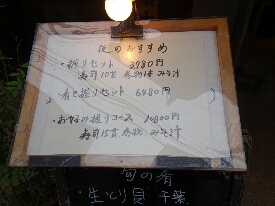 夜のおすすめ
・握りセット 3780円
寿司10貫 巻物1本 みそ汁
・肴と握りセット 6480円
・おまかせ握りコース 10800円
寿司15貫 巻物 みそ汁
旬の肴
・生とり貝 千葉